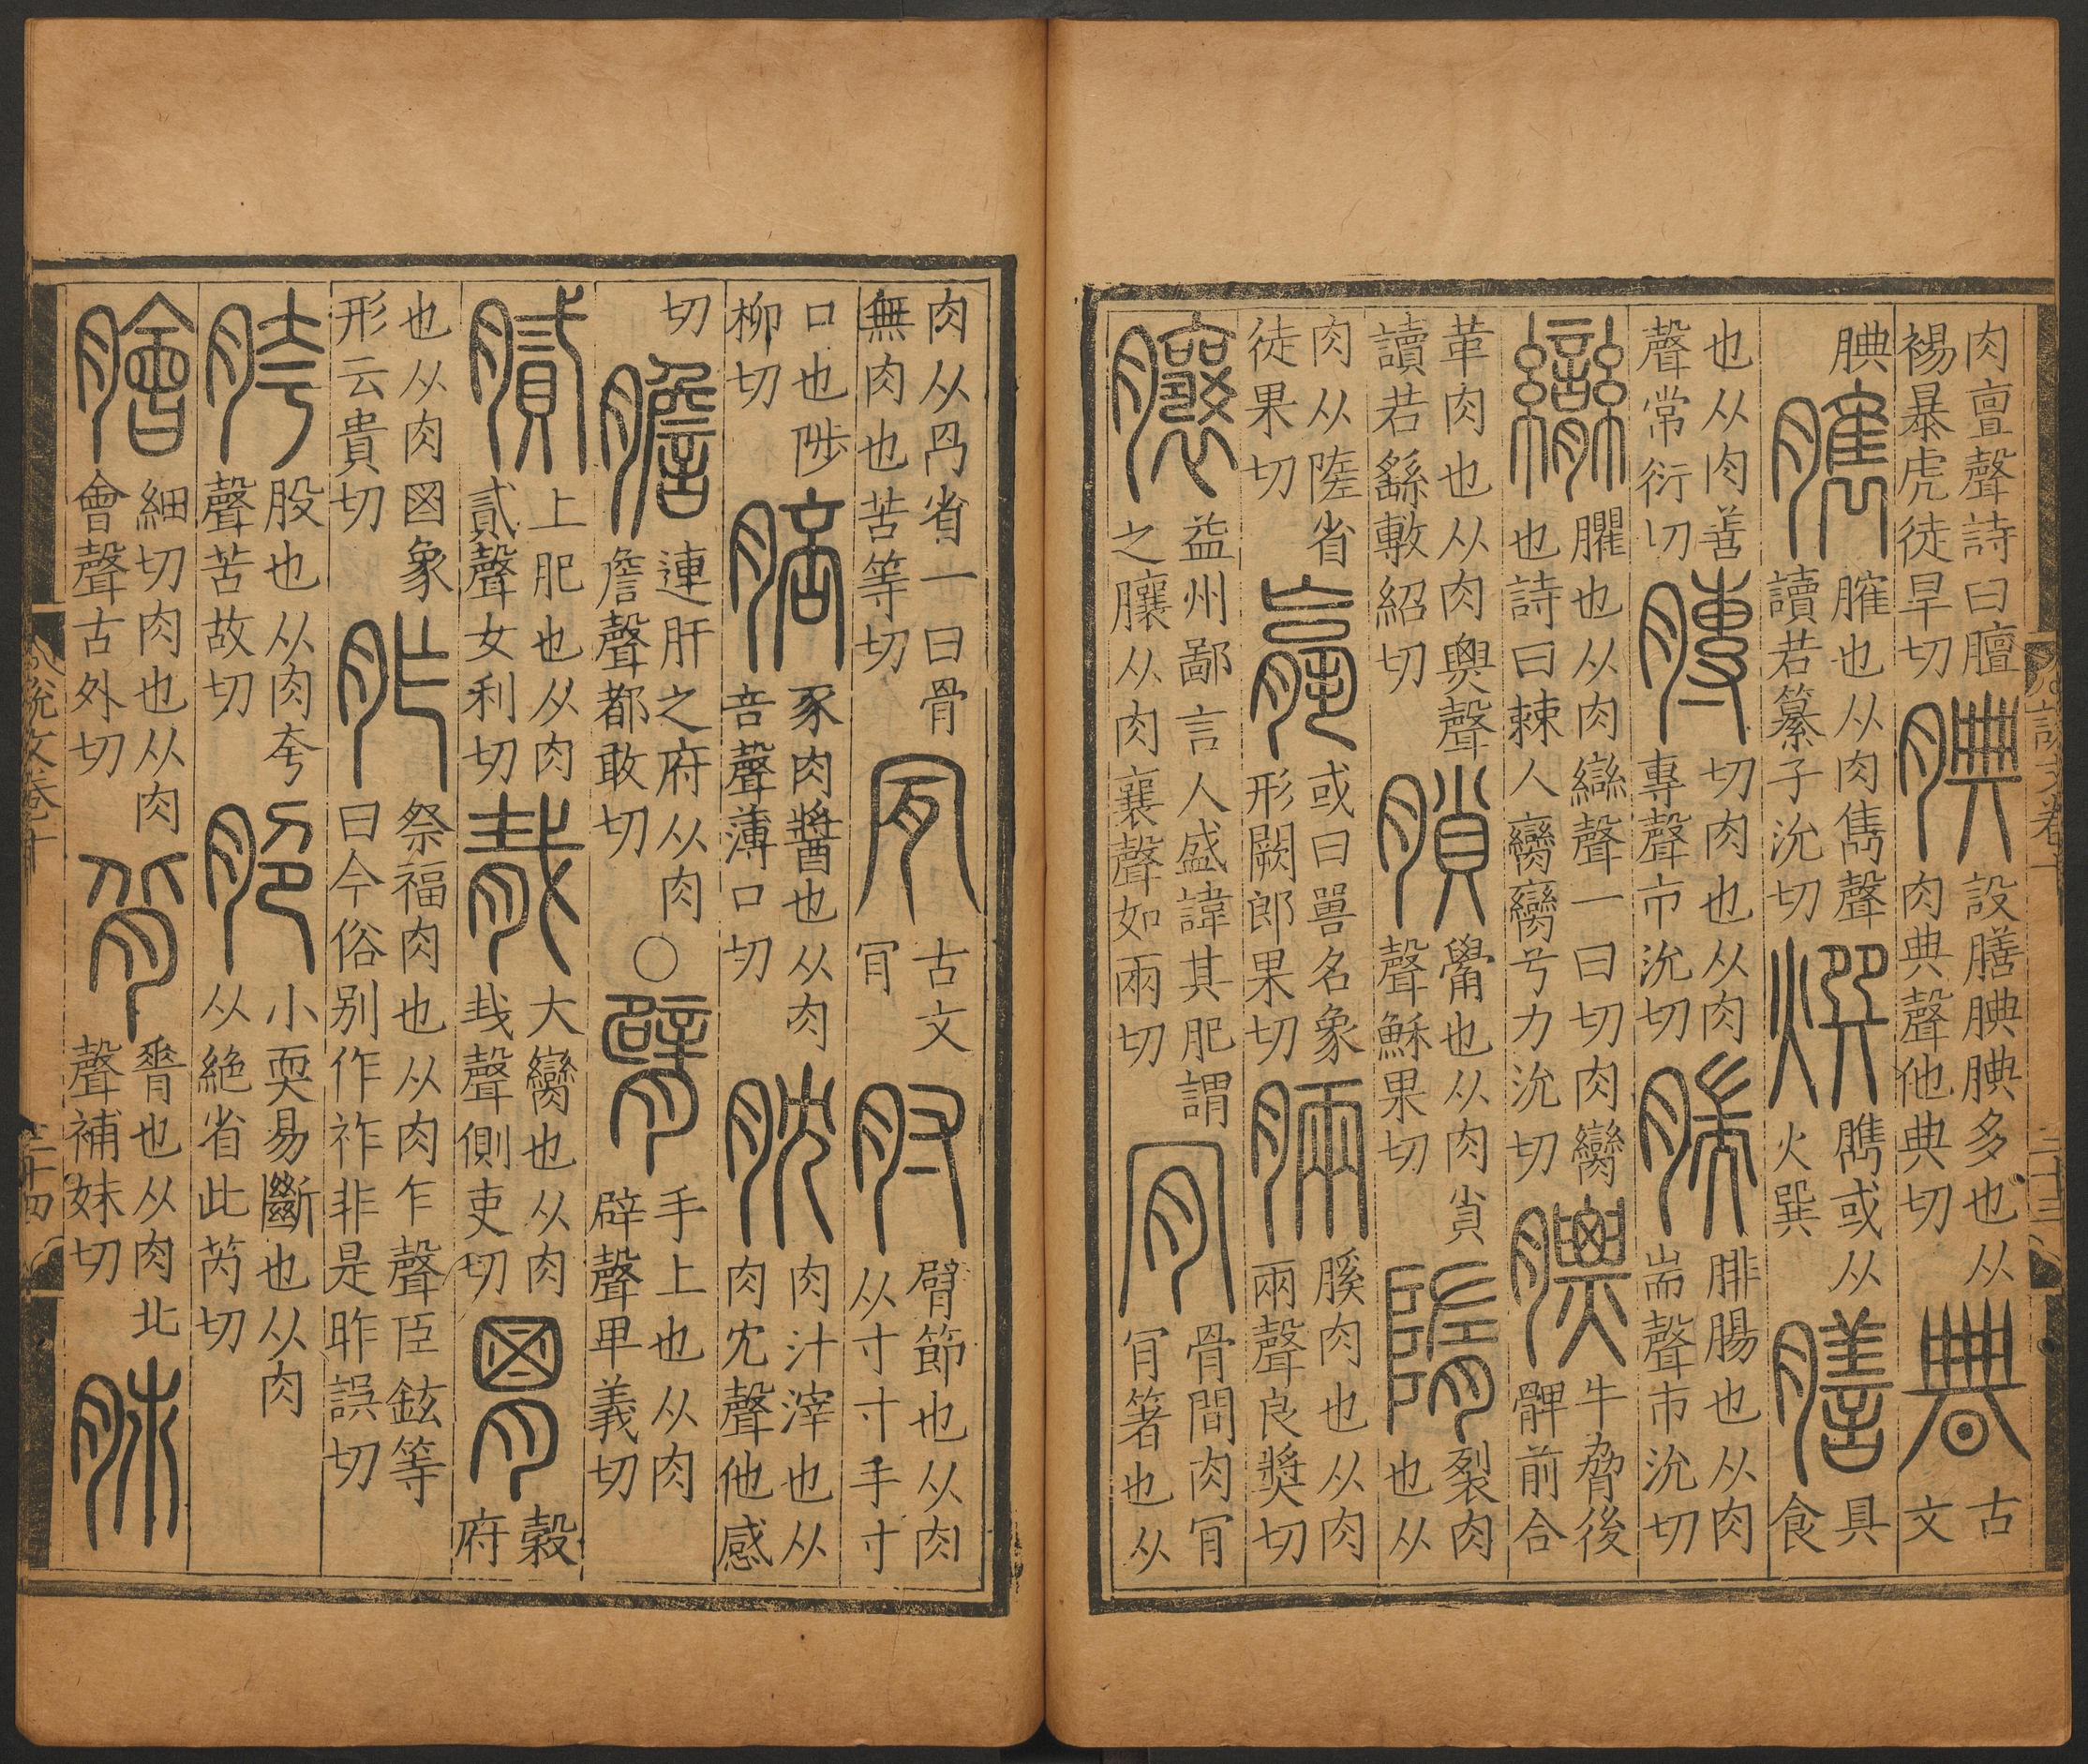 說文卷十 三十三
肉亶聲詩曰膻裼暴虎徒旱切 腆 設膳腆腆多也从肉典聲他典切 古文
腆 臇 臛也从肉雋聲讀若纂子沇切 臇或从火巽 膳 具食
也从肉善聲常衍切 膞 切肉也从肉專聲市沇切 腨 腓腸也从肉耑聲市沇切
臠 臞也从肉䜌聲一曰切肉臠也詩曰棘人臠臠兮力沇切 膘 牛脅後髀前合
革肉也从肉㶾聲讀若繇敷紹切 䐝 觷也从肉𧴪聲穌果切 隋 裂肉也从
肉从隓省徒果切 𦝠 或曰嘼名象形闕郎果切 脼 膎肉也从肉兩聲良獎切
䑋 益州鄙言人盛諱其肥謂之䑋从肉襄聲如兩切 肎 骨間肉肎箸也从
肉从冎省一曰骨無肉也苦等切 古文肎 肘 臂節也从肉从寸寸手寸
口也陟柳切 䏽 豕肉醬也从肉咅聲薄口切 肬 肉汁滓也从肉冘聲他感
切 膽 連肝之府从肉詹聲都敢切 ○ 臂 手上也从肉辟聲卑義切
膩 上肥也从肉貳聲女利切 胾 大臠也从肉𢦏聲側吏切 胃 穀府
也从肉𡇒象形云貴切 胙 祭福肉也从肉乍聲臣鉉等曰今俗别作祚非是昨誤切
胯 股也从肉夸聲苦故切 脃 小耎易斷也从肉从絶省此芮切
膾 細切肉也从肉會聲古外切 背 𦟝也从肉北聲補妹切 肺
說文卷十 三十四